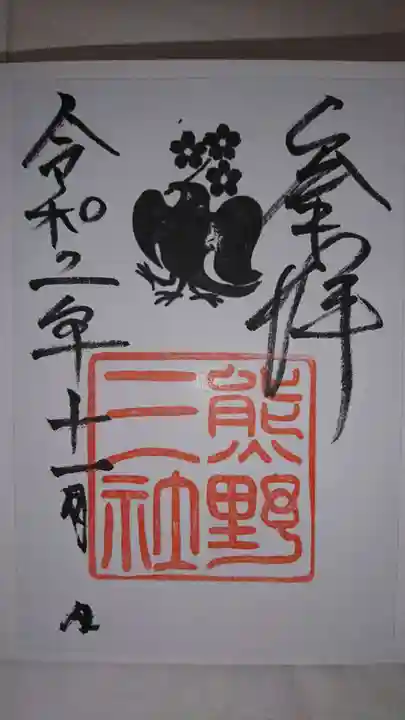 参拝
熊野
三社
令和二年十一月 日